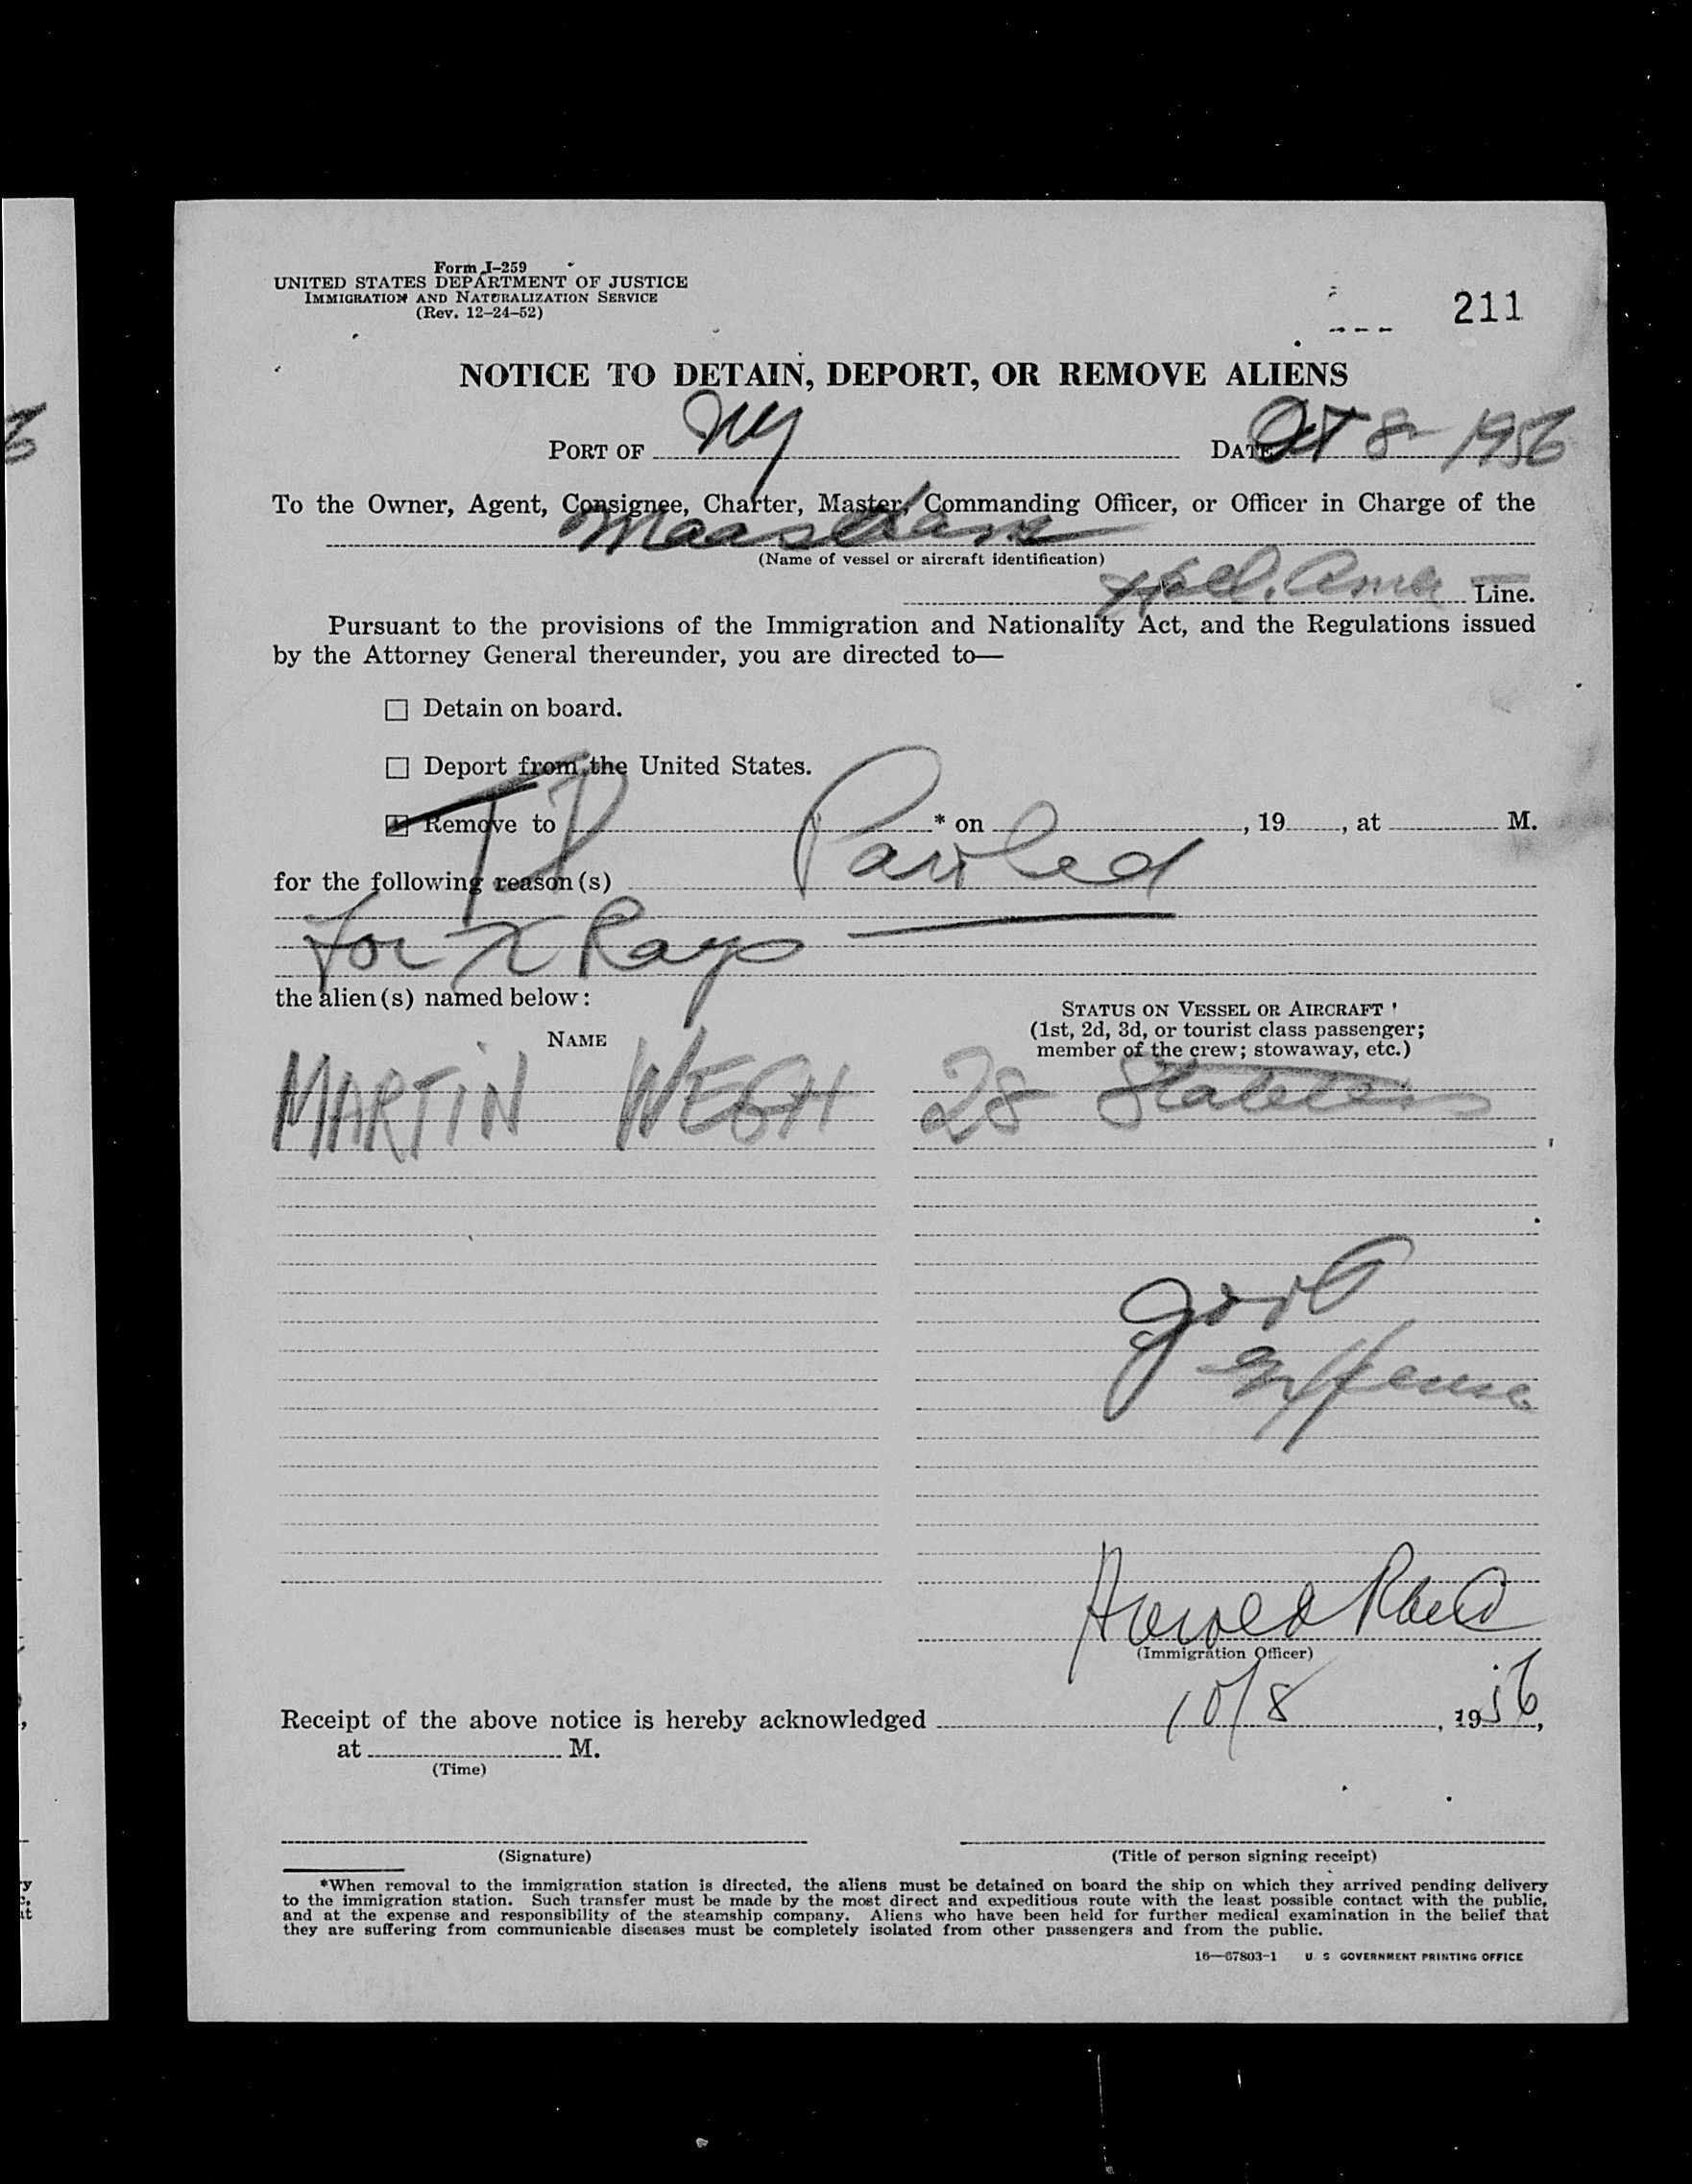 Form I-259
UNITED STATES DEPARTMENT OF JUSTICE
IMMIGRATION AND NATURALIZATION SERVICE
(Rev. 12-24-52)
211
NOTICE TO DETAIN, DEPORT, OR REMOVE ALIENS
PORT OF NY DATE Oct 8- 1956
To the Owner, Agent, Consignee, Charter, Master, Commanding Officer, or Officer in Charge of the
Maasdam
(Name of vessel or aircraft identification)
Holl. Amer Line.
Pursuant to the provisions of the Immigration and Nationality Act, and the Regulations issued
by the Attorney General thereunder, you are directed to—
☐ Detain on board.
☐ Deport from the United States.
Remove to * on , 19 , at M.
for the following reason(s) Paroled
for X Rays
the alien(s) named below:
NAME
STATUS ON VESSEL OR AIRCRAFT
(1st, 2d, 3d, or tourist class passenger;
member of the crew; stowaway, etc.)
MARTIN 28 Stateless
Gov't
Expense
Harold
(Immigration Officer)
Receipt of the above notice is hereby acknowledged 10/8 , 1956,
at M.
(Time)
(Signature)
(Title of person signing receipt)
*When removal to the immigration station is directed, the aliens must be detained on board the ship on which they arrived pending delivery
to the immigration station. Such transfer must be made by the most direct and expeditious route with the least possible contact with the public,
and at the expense and responsibility of the steamship company. Aliens who have been held for further medical examination in the belief that
they are suffering from communicable diseases must be completely isolated from other passengers and from the public.
16—67803-1 U. S. GOVERNMENT PRINTING OFFICE